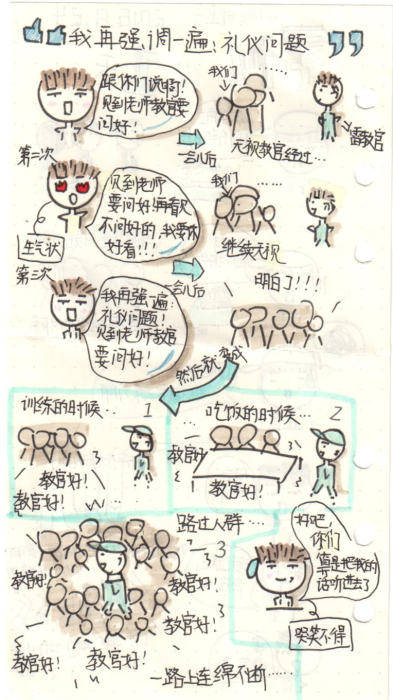 我再强调一遍:礼仪问题
跟你们说啊!
见到老师教官要
问好!
我们
……
第一次
一会儿后
无视教官经过…
雷教官
见到老师
要问好!再看见
不问好的,我要你
好看!!!
生气状
我们
……
第二次
一会儿后
继续无视
我再强一遍:
礼仪问题!
见到老师教官
要问好!
第三次
明白了!!!
然后就变成
训练的时候… 1
教官好!
教官好!
吃饭的时候… 2
教官好
教官好!
路过人群… 3
教官好!
教官好!
教官好!
教官好!
教官好!
好吧,
你们
算是把我的
话听进去了
哭笑不得
一路上连绵不断……